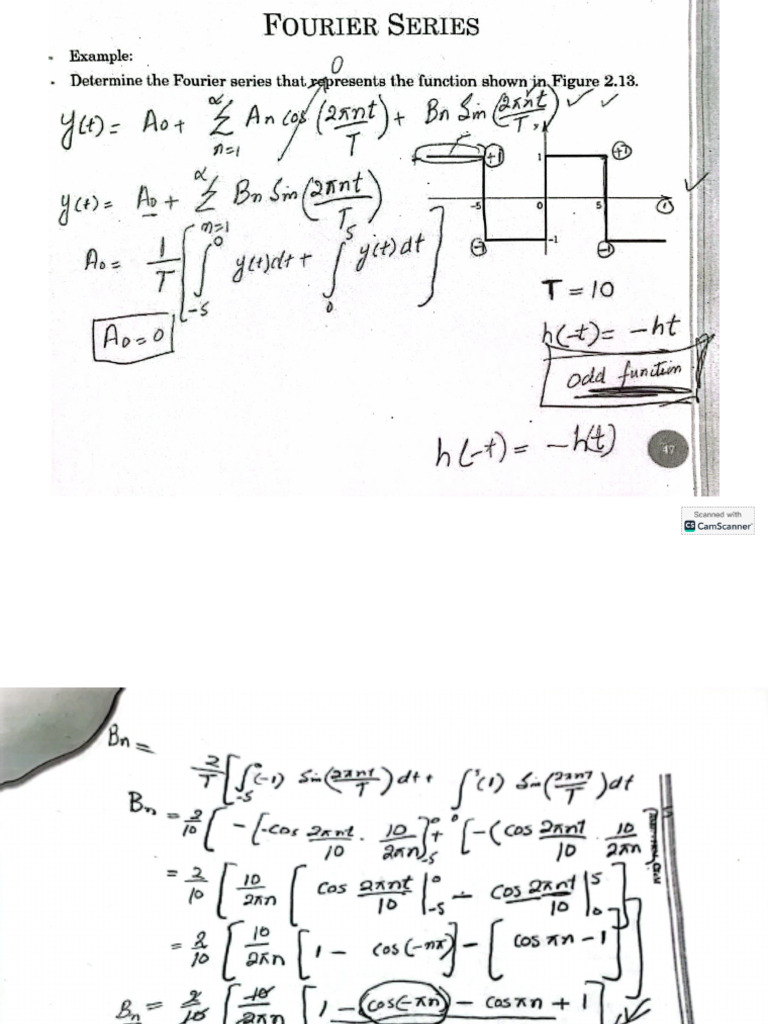 FOURIER SERIES
Example:
0
Determine the Fourier series that represents the function shown in Figure 2.13.
y(t) = A0 + ∞ Σ n=1 An cos (2πnt / T) + Bn Sin (2πnt / T)
+1 1 +1
y(t) = A0 + ∞ Σ n=1 Bn Sin (2πnt / T)
-5 0 5 t
-1 -1 -1
A0 = 1/T [ ∫_{-5}^{0} y(t)dt + ∫_{0}^{5} y(t)dt ]
T = 10
A0 = 0
h(-t) = -ht
odd function
h(-t) = -h(t)
47
Scanned with
CS CamScanner
Bn =
2/T [ ∫_{-5}^{0} (-1) Sin(2πnt / T) dt + ∫_{0}^{5} (1) Sin(2πnt / T) dt
Bn = 2/10 [ -[-cos 2πnt/10 . 10/2πn]_{-5}^{0} + [-(cos 2πnt/10 . 10/2πn
= 2/10 [ 10/2πn [ cos 2πnt/10 |_{-5}^{0} - cos 2πnt/10 |_{0}^{5} ]
= 2/10 [ 10/2πn [1 - cos(-nπ)] - [cos πn - 1] ]
Bn = 2/10 [ 10/2πn [1 - cos(-πn) - cos πn + 1]